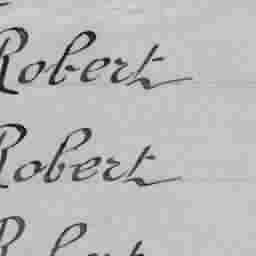 Robert
Robert